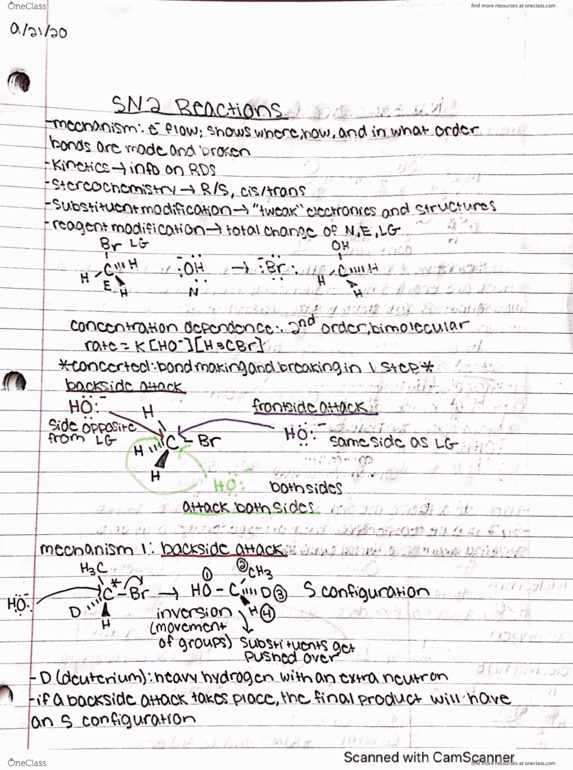 OneClass
find more resources at oneclass.com
9/21/20
SN2 Reactions
-mechanism: e⁻ flow; shows where, how, and in what order
bonds are made and broken
-Kinetics → info on RDS
-Stereochemistry → R/S, cis/trans
-Substituent modification → "tweak" electronics and structures
-reagent modification → total change of N, E, LG
Br LG
OH
H C H :OH → :Br: H C H
E H N H
concentration dependence: 2nd order, bimolecular
rate = K[HO⁻][H3CBr]
*concerted: bond making and breaking in 1 step*
backside attack
HO:⁻ H frontside attack
side opposite from LG
H C - Br HO:⁻ same side as LG
H
HO:⁻ both sides
attack both sides
mechanism 1: backside attack
H3C * ① ② CH3
HO:⁻ C - Br → HO - C D ③ S configuration
D H H ④
inversion
(movement of groups)
substituents get pushed over
-D (deuterium): heavy hydrogen with an extra neutron
-if a backside attack takes place, the final product will have
an S configuration
Scanned with CamScanner
OneClass
find more resources at oneclass.com